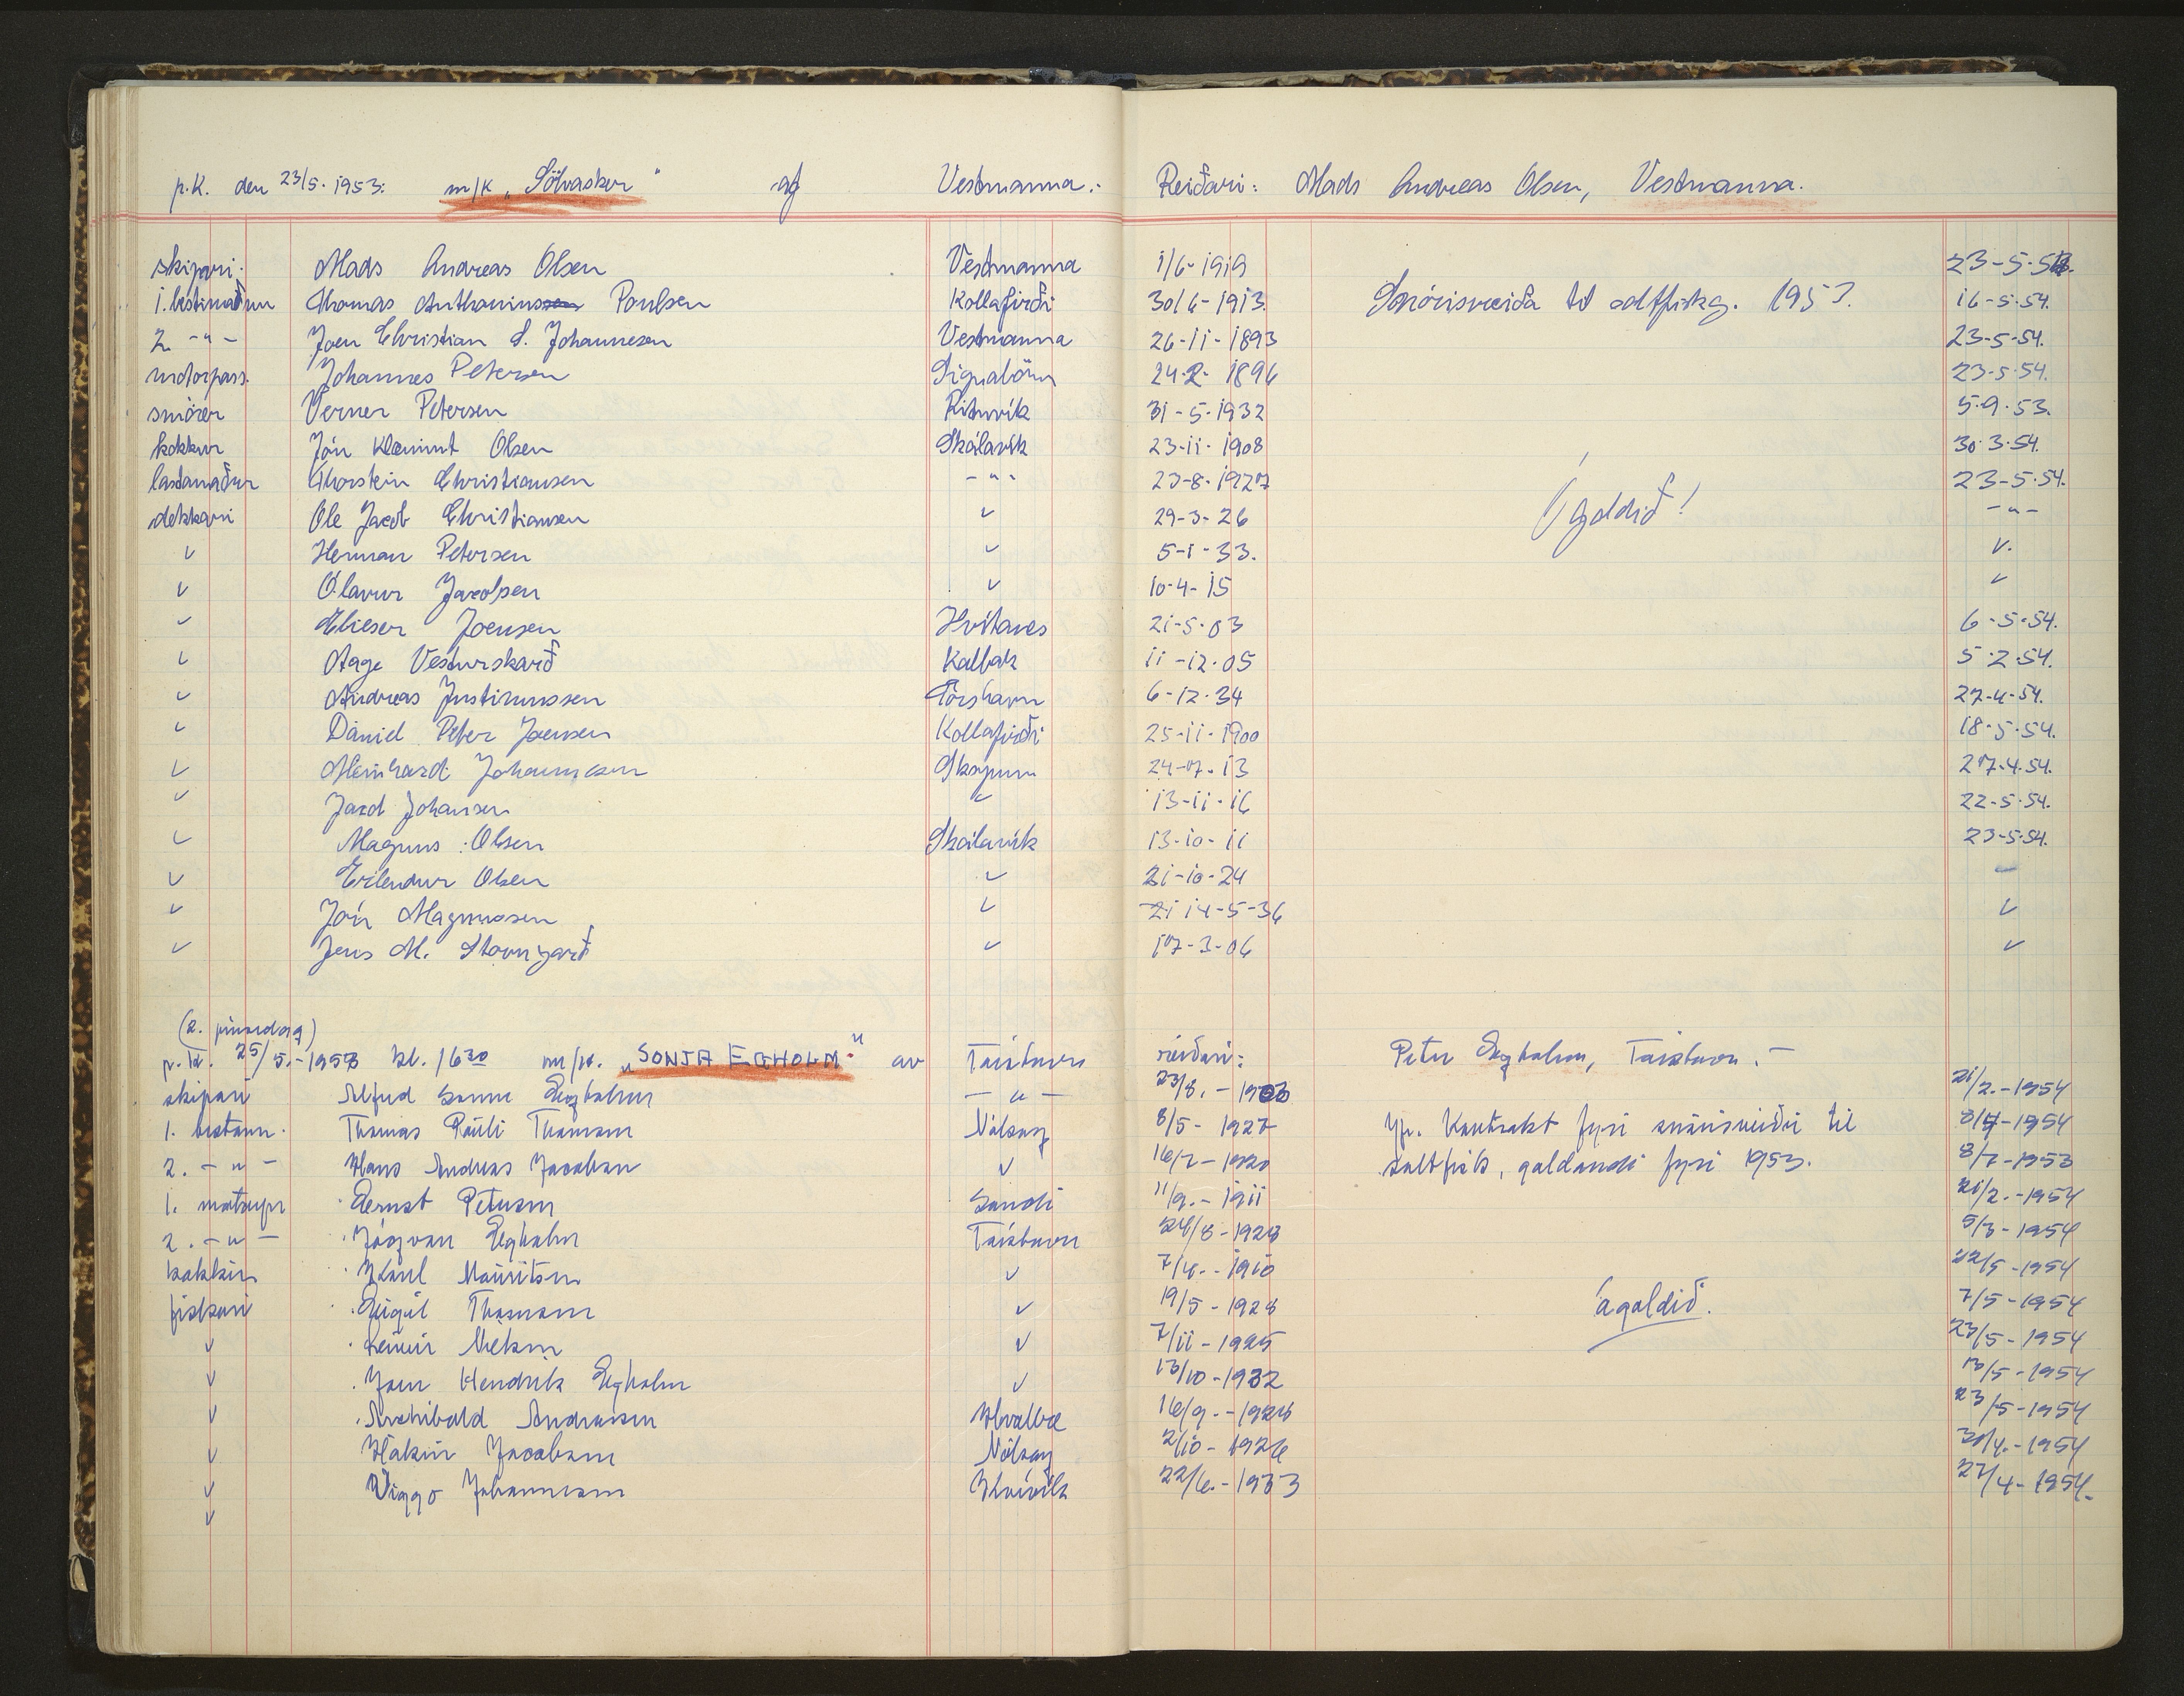 p.k. den 23/5. 1953. m/k „Sölvasker" af Vestmanna.- Reiðari: Mads Andreas Olsen, Vestmanna.
skipari. Mads Andreas Olsen Vestmanna 1/6-1919 23-5-54.
1. bestimaður Thomas Anthonius Poulsen Kollafirði 30/6-1913. Snórisveiða til saltfiskg. 1953. 16-5-54.
2. -"- Joen Christian S. Johannesen Vestmanna 26-11-1893 23-5-54.
motorpass. Johannes Petersen Signabönur 24-2-1896 23-5-54.
smörer Verner Petersen Rituvík 31-5-1932 5-9-53.
kokkur Jón Klæmint Olsen Skálavík 23-11-1908 30-3-54.
lastamaður Thorstein Christiansen -"- 23-8-1927 23-5-54.
dekkari Ole Jacob Christiansen ✓ 29-3-26 Ógoldið! -"-
✓ Herman Petersen ✓ 5-1-33. ✓.
✓ Ólavur Jacobsen ✓ 10-4-15 ✓
✓ Elieser Joensen Hvítanes 21-5-03 6-5-54.
✓ Aage Vesturskarð Kalbak 11-12-05 5-2-54.
✓ Andreas Justinussen Tórshavn 6-12-34 27-4-54.
✓ Dániel Peter Joensen Kollafirði 25-11-1900 18-5-54.
✓ Meinhard Johannesen Skopun 24-7-13 27-4-54.
✓ Jacob Johansen ✓ 13-11-16 22-5-54.
✓ Magnus Olsen Skálavík 13-10-11 23-5-54.
✓ Erlendur Olsen ✓ 21-10-24 —
✓ Jón Magnussen ✓ 21 14-5-36 ✓
✓ Jens M. ✓ 17-3-06 ✓
(2. pinsedag)
p.k. 25/5.-1953 kl. 16 30 m/sk. „SONJA EGHOLM" av Tórshavn reiðari: Peter Egholm, Tórshavn.-
skipari Alfred Egholm -"- 23/8.-1906 21/2.-1954
1. bestim. Thomas Páuli Thomsen Nólsoy 8/5-1927 Yv. kontrakt fyri snórisveiði til 8/4-1954
2. -"- Hans Andreas Jacobsen ✓ 16/7-1920 saltfisk, galdandi fyri 1953. 8/7-1953
1. Ernst Petersen Sandi 11/9.-1911 21/2.-1954
2. -"- Jógvan Egholm Tórshavn 24/8-1928 5/3-1954
kokkur Karl Mouritsen ✓ 7/4.-1910 22/5-1954
fiskari Eigil Thomsen ✓ 19/5-1928 ógoldið. 7/5-1954
✓ Nielsen ✓ 7/11-1925 23/5-1954
✓ Joen Hendrik Egholm ✓ 13/10-1932 13/5-1954
✓ Archibald Andreasen Hvalba 16/9.-1928 23/5-1954
✓ Hákun Jacobsen Nólsoy 2/10-1926 30/4.-1954
✓ Viggo Johannesen Kvívík 22/6.-1933 27/4-1954.
✓